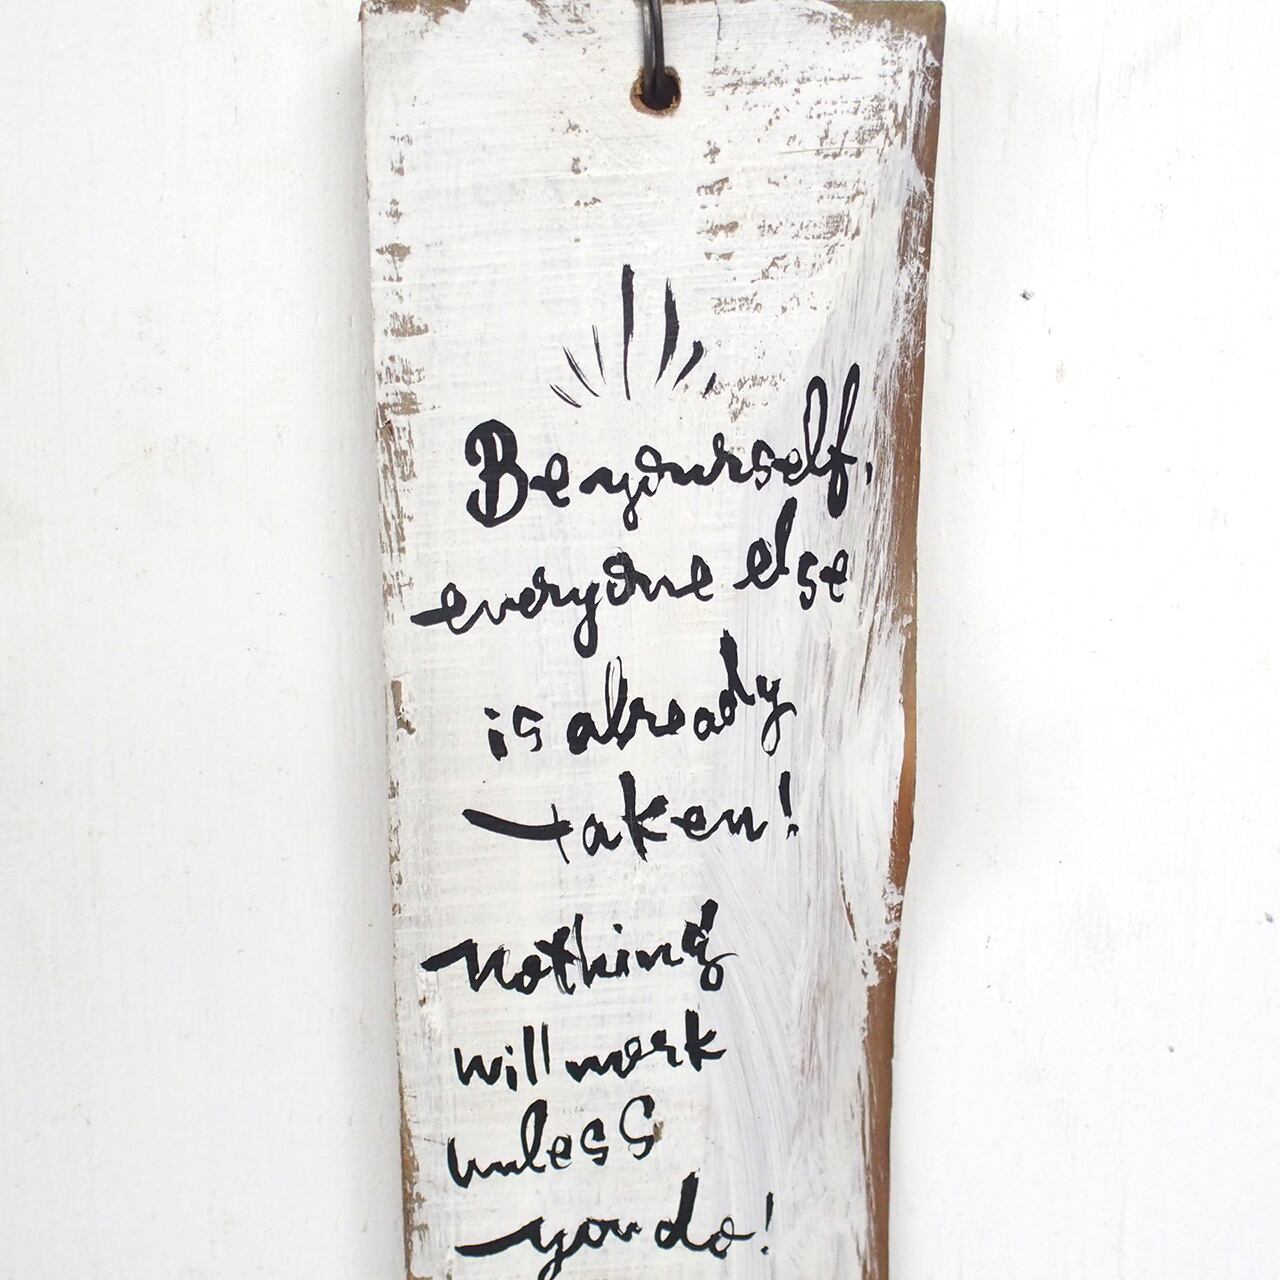 Be yourself,
everyone else
is already
taken!
nothing
will work
unless
you do!